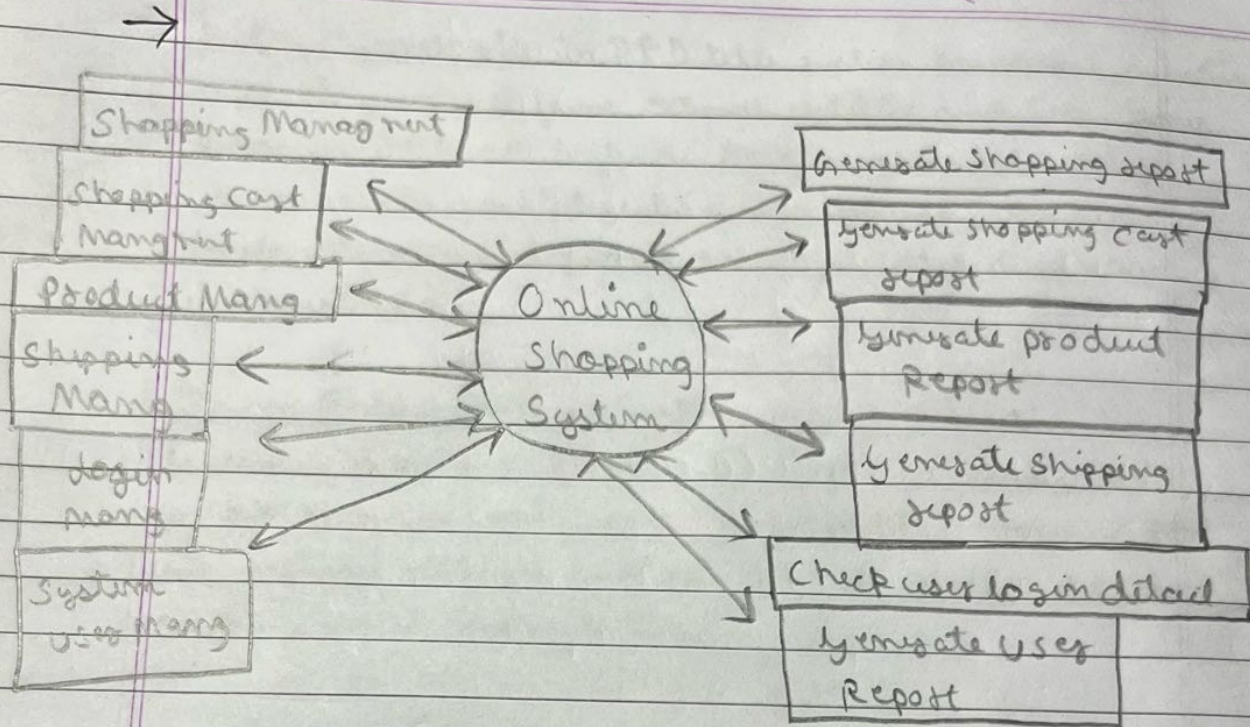 Shopping Managment
Shopping Cart
Mangment
Product Mang
Shipping
Mang
Login
Mang
System
user Mang
Online
Shopping
System
Generate Shopping report
Generate Shopping Cart
report
Generate product
Report
Generate Shipping
report
Check user login detail
Generate User
Report